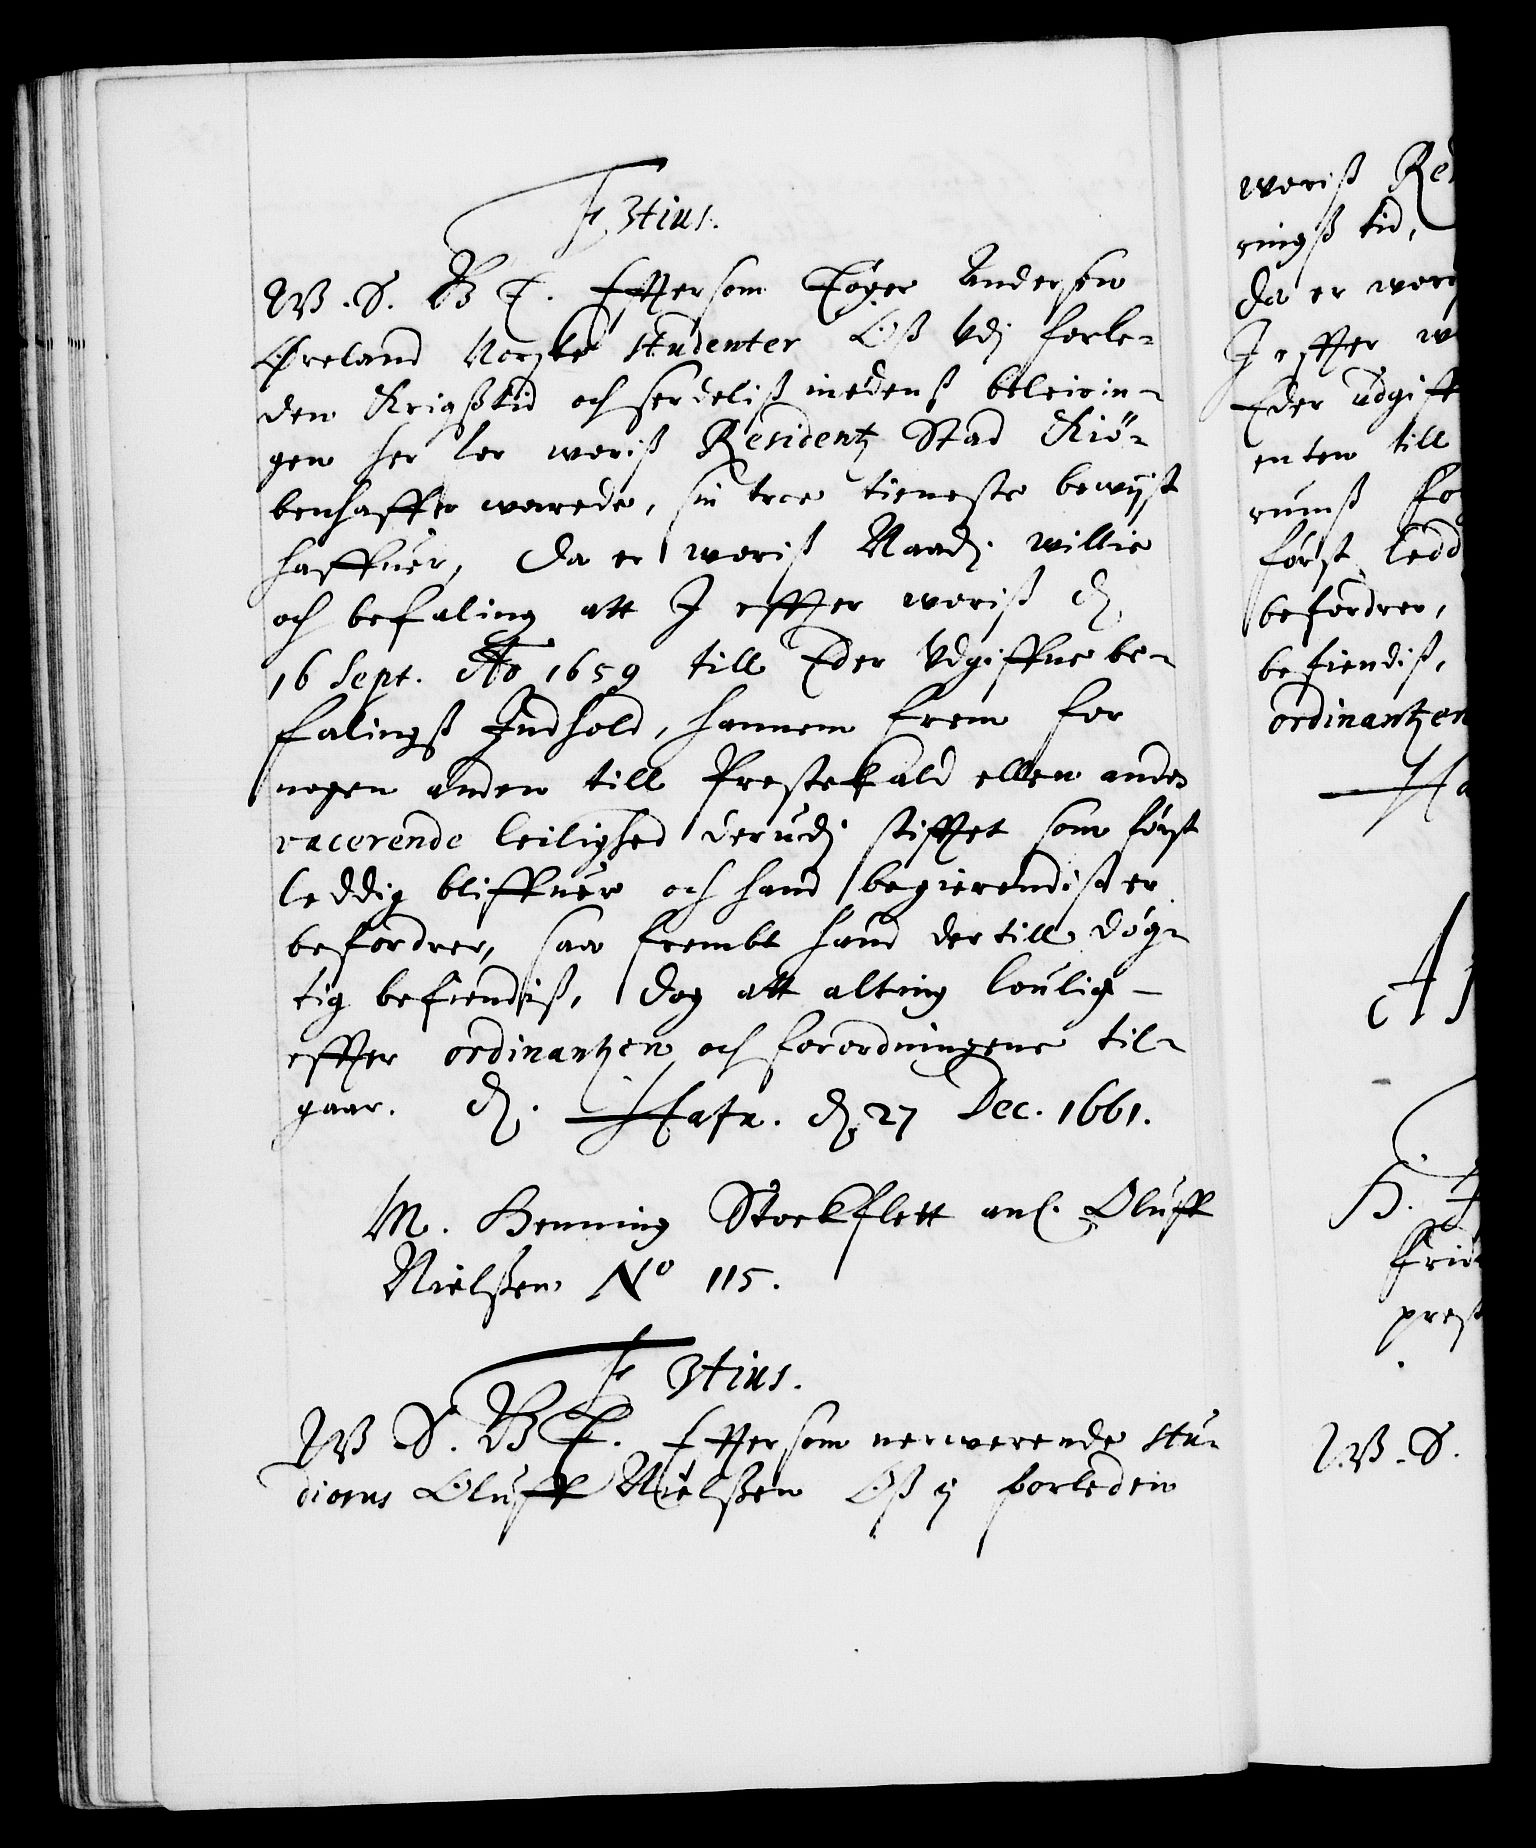 F 3tius.
W. S. B T. Effter som Tøger Andersen
Øreland Norske studenter Oß Udj forle-
den Krigßtid och serdeliß medenß beleirin-
gen her for woriß Residentz Stad Kiø-
benhaffn warede, sin troe tieneste bewijst
haffuer, Da er woriß Naad. willie
och befaling att I effter woriß d.
16 Sept. Ao 1659 till Eder Udgiffne be-
falingß Indhold, hannem frem for
nogen anden till Prestekald eller anden
vacerende leilighed derudj stifftet som først
leddig bliffuer och hand begierendist er
befordrer, saa frembt hand dertill døg-
tig befiendiß, Dog att alting louligt
effter ordinantzen och forordningerne til-
gaar. d. Hafn. d. 27 Dec. 1661.
M. Henning Stockflett anl. Oluff
Nielßen No 115.
F 3tius.
W S. B T. Effter som nerwerende stu-
diosus Oluff Nielßen Oß ij forleden
woriß Re
ringß tid,
da er wor
I effter w
Eder udgif
enten till
rumß fo
først ledd
befordrer,
befiendiß,
ordinantzen
Ha
H.
prest
W. S.